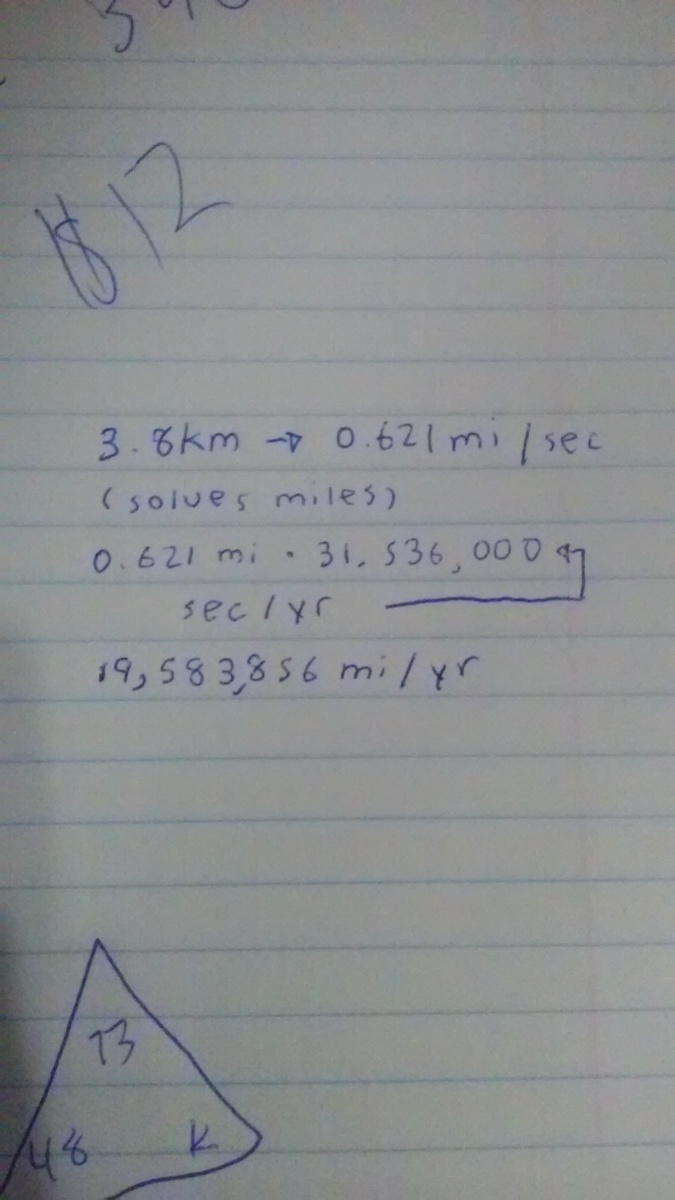 $12
3.8km → 0.621 mi/sec
(solves miles)
0.621 mi · 31,536,000
sec/yr
19,583,856 mi/yr
73
48 K